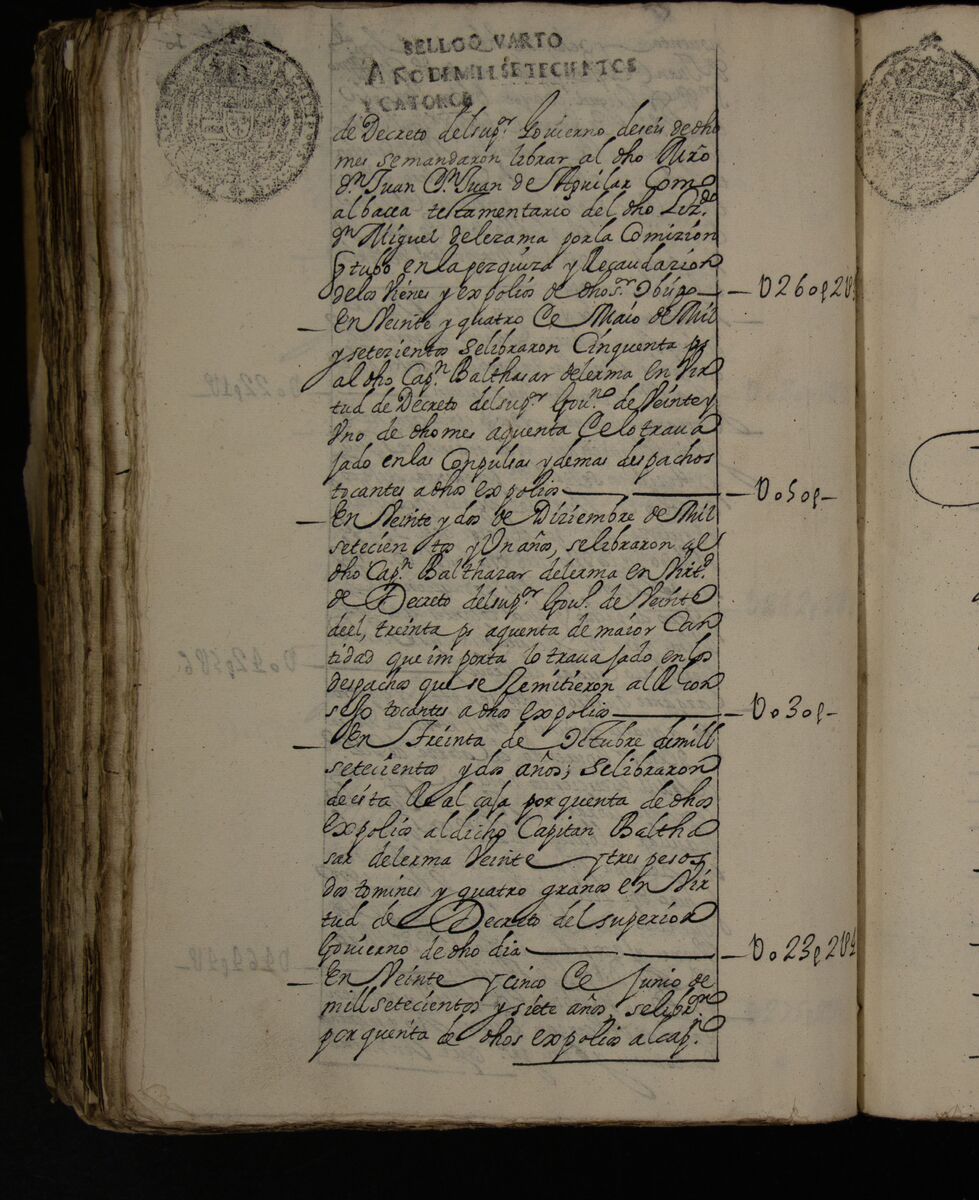 SELLO QVARTO
AÑO DE MIL SETECIENTOS
Y CATORCE
de Decreto del supr. Govierno de seis de dho
mes se mandaron librar al dho
Dn Juan de Aguilar Como
albacea testamentario del dho Lizdo
Dn Miguel de lezama por la Comizion
q tubo en la pezquiza y Recaudazion
de los vienes y expolios de dho sr. Obispo — U260p2
En Veinte y quatro de Maio de Mil
y setezientos se libraron Cinquenta ps
al dho Capn Balthasar de lerma en Vir
tud de Decreto del supr Govno de Veinte y
Vno de dho mes aquenta de lo traua
jado en las Conpulsas y demas despachos
tocantes a dhos expolios — U050p
En Veinte y dos de Diziembre de Mil
setecientos y Un años, se libraron al
dho Capn Balthazar de lerma en Virtd
de Decreto del supr Govo. de Veinte
de el, treinta ps aquenta de maior Can
tidad que importa lo trauajado en los
despachos que se Remitieron al Rl Con
sejo tocantes a dhos expolios — U030p
En Treinta de Octubre de mill
setecientos y dos años; se libraron
de esta Real caja por quenta de dhos
expolios al dicho Capitan Baltha
sar de lerma Veinte y tres pesos
dos tomines y quatro granos en Vir
tud de Decreto del superior
Govierno de dho dia — U023p2
En Veinte y cinco de Junio de
mill setecientos y siete años se libron
por quenta de dhos expolios al capn